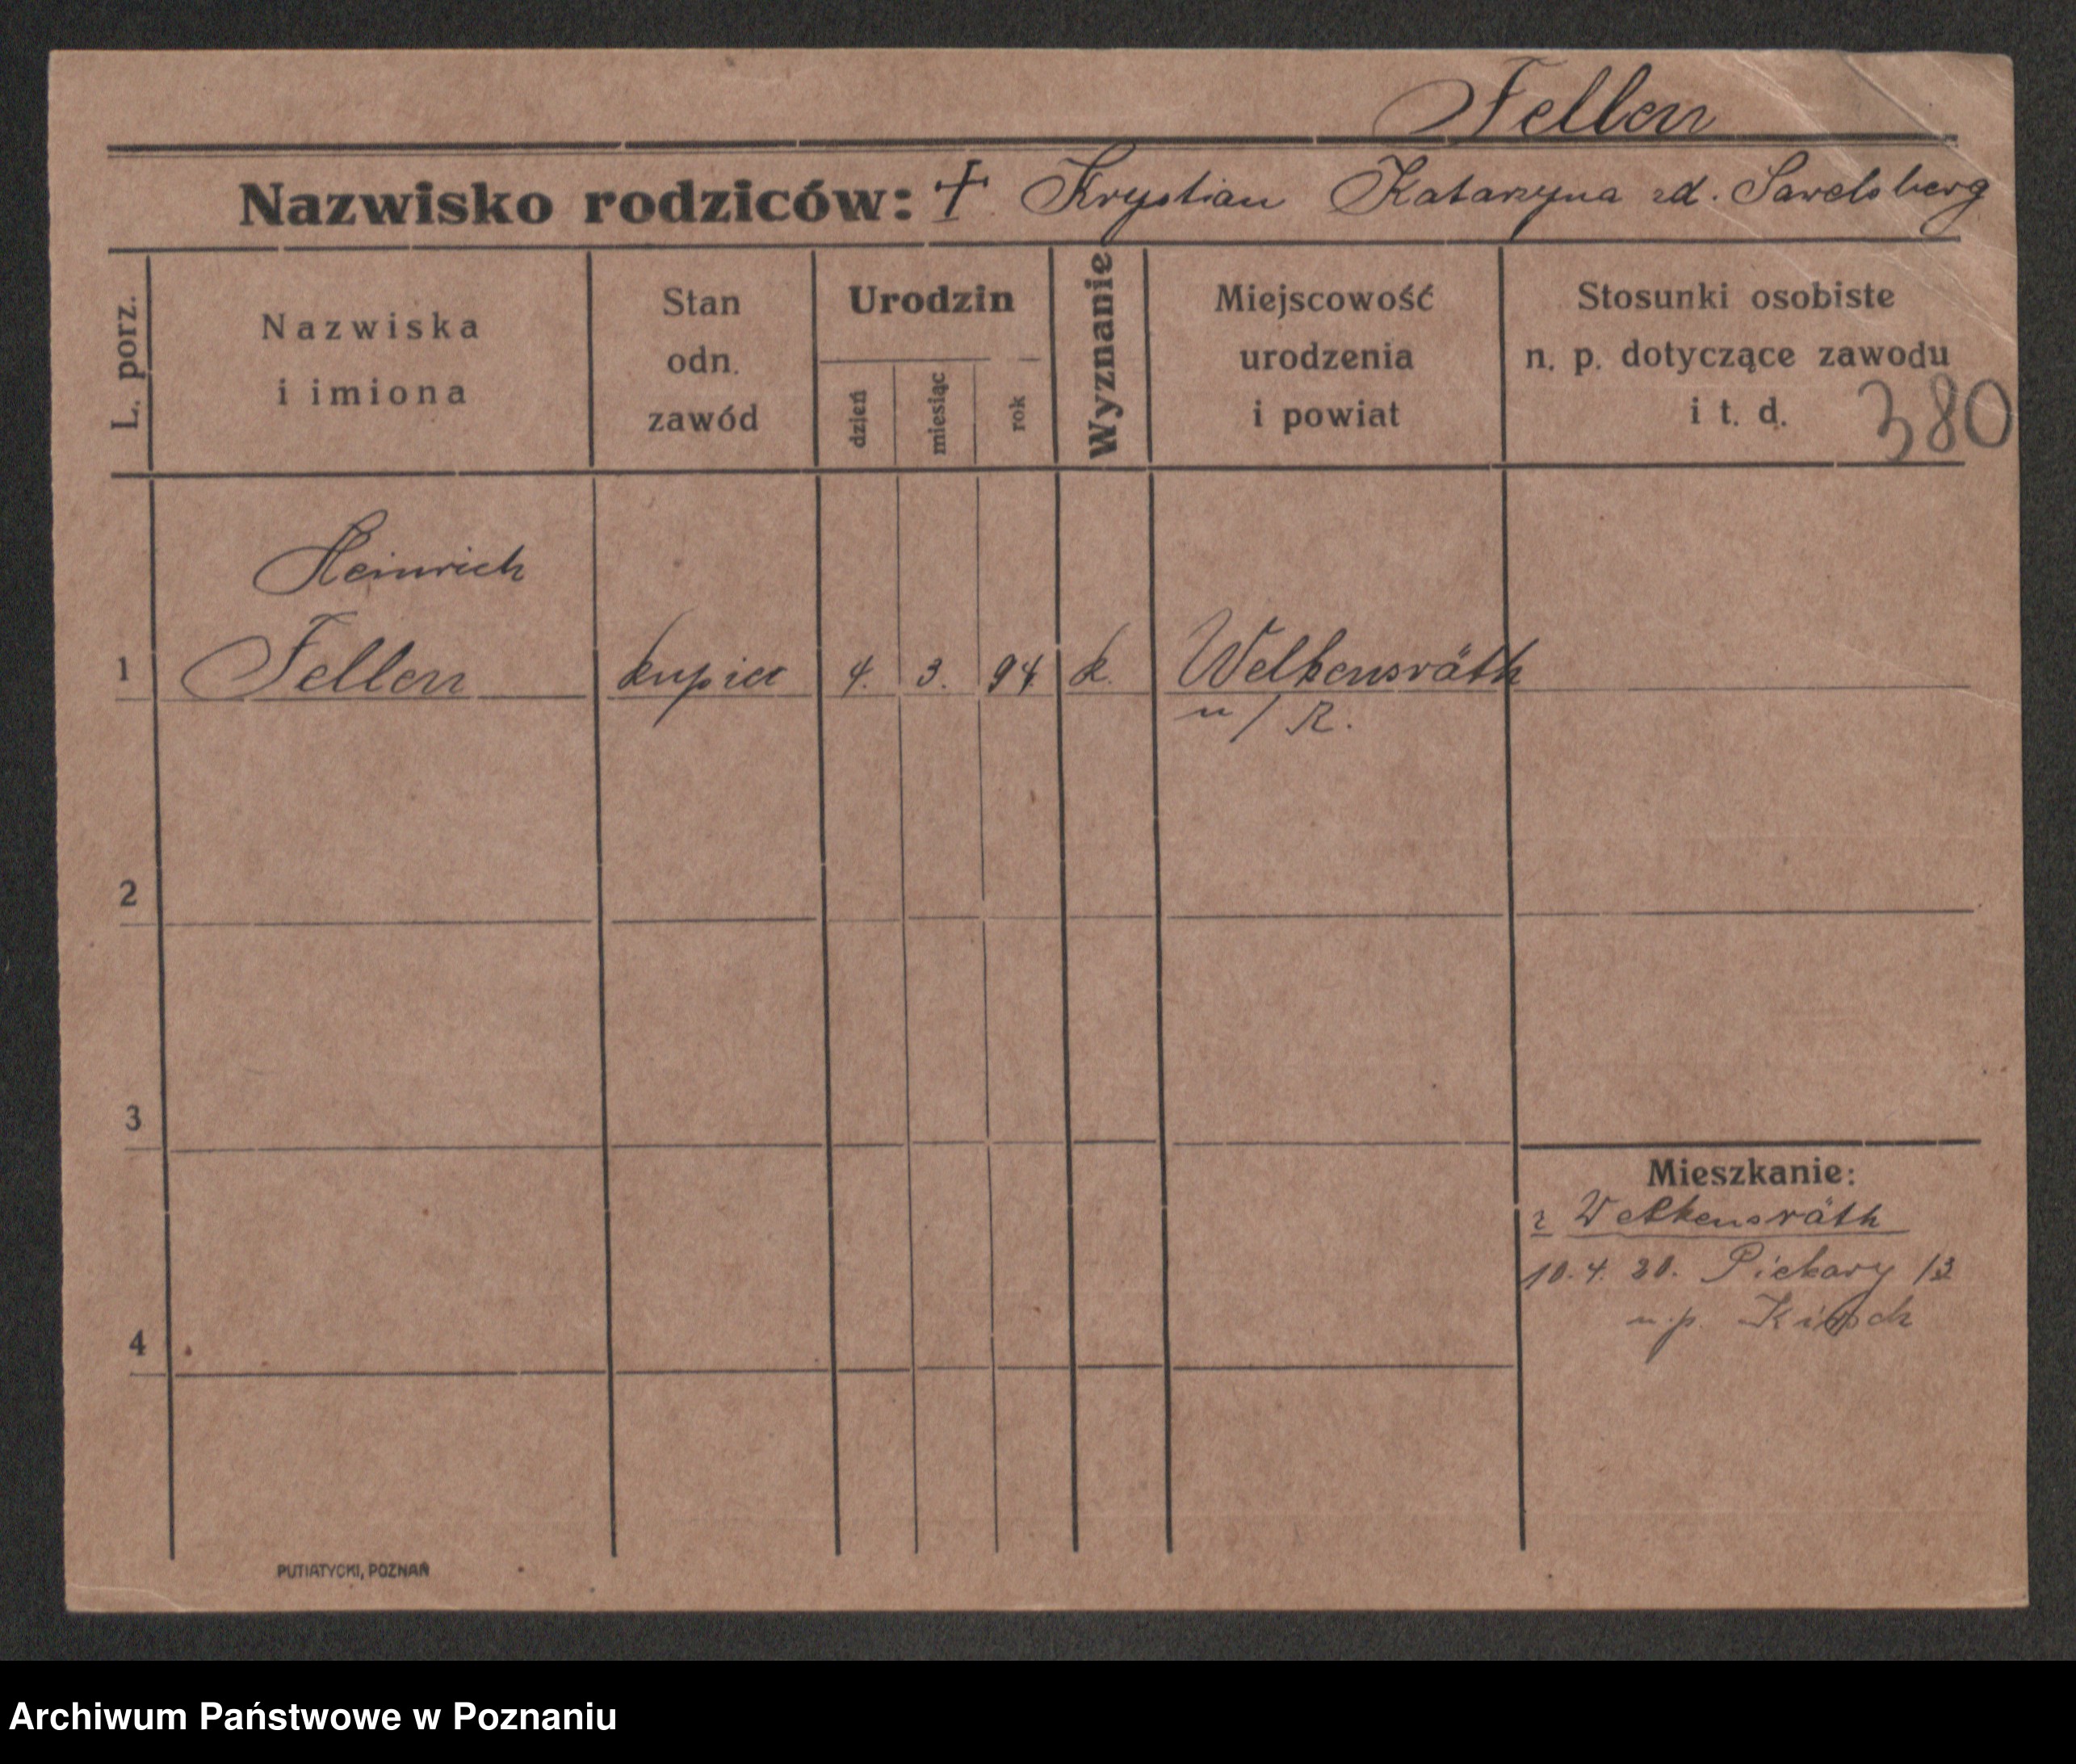 Fellen
Nazwisko rodziców: + Krystian Katarzyna zd. Sawelsberg
L. porz.
Nazwiska
i imiona
Stan
odn.
zawód
Urodzin
dzień
miesiąc
rok
Wyznanie
Miejscowość
urodzenia
i powiat
Stosunki osobiste
n. p. dotyczące zawodu
i t. d.
380
Heinrich
1 Fellen kupiec 4. 3. 94. k. Welkensräth
n/R.
2
3
Mieszkanie:
z Welkensräth
10. 4. 20. Piekary 13
u p.
4
PUTIATYCKI, POZNAŃ
Archiwum Państwowe w Poznaniu